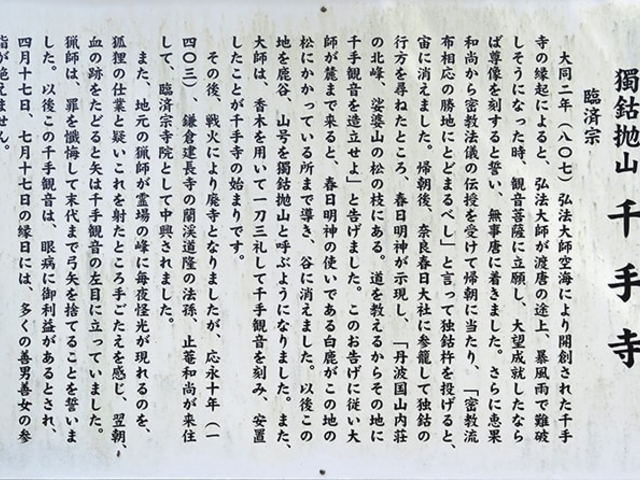 獨鈷抛山 千手寺
臨済宗
大同二年（八〇七）弘法大師空海により開創された千手
寺の縁起によると、弘法大師が渡唐の途上、暴風雨で難破
しそうになった時、観音菩薩に立願し、大望成就したなら
ば尊像を刻すると誓い、無事唐に着きました。さらに恵果
和尚から密教法儀の伝授を受けて帰朝に当たり、「密教流
布相応の勝地にとどまるべし」と言って独鈷杵を投げると、
宙に消えました。帰朝後、奈良春日大社に参籠して独鈷の
行方を尋ねたところ、春日明神が示現し、「丹波国山内荘
の北峰、娑婆山の松の枝にある。道を教えるからその地に
千手観音を造立せよ」と告げました。このお告げに従い大
師が麓まで来ると、春日明神の使いである白鹿がこの地の
松にかかっている所まで導き、谷に消えました。以後この
地を鹿谷、山号を獨鈷抛山と呼ぶようになりました。また、
大師は、香木を用いて一刀三礼して千手観音を刻み、安置
したことが千手寺の始まりです。
その後、戦火により廃寺となりましたが、応永十年（一
四〇三）鎌倉建長寺の蘭渓道隆の法孫、止菴和尚が来住
して、臨済宗寺院として中興されました。
また、地元の猟師が霊場の峰に毎夜怪光が現れるのを、
狐狸の仕業と疑いこれを射たところ手ごたえを感じ、翌朝、
血の跡をたどると矢は千手観音の左目に立っていました。
猟師は、罪を懺悔して末代まで弓矢を捨てることを誓いま
した。以後この千手観音は、眼病に御利益があるとされ、
四月十七日、七月十七日の縁日には、多くの善男善女の参
詣が絶えません。